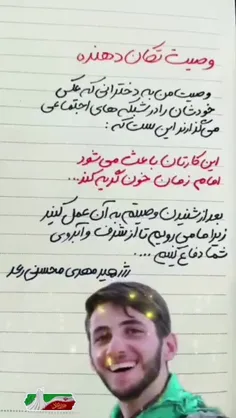 وصیت تکان دهنده
وصیت من به دخترانی که عکس
خودشان را در شبکه های اجتماعی
می گذارند این ست که :
این کارتان باعث می شود
امام زمان خون گریه کند...
بعد از شنیدن وصیتم به آن عمل کنید
زیرا ما می رویم تا از شرف و آبروی
شما دفاع کنیم ....
شهید مهدی محسنی رعد